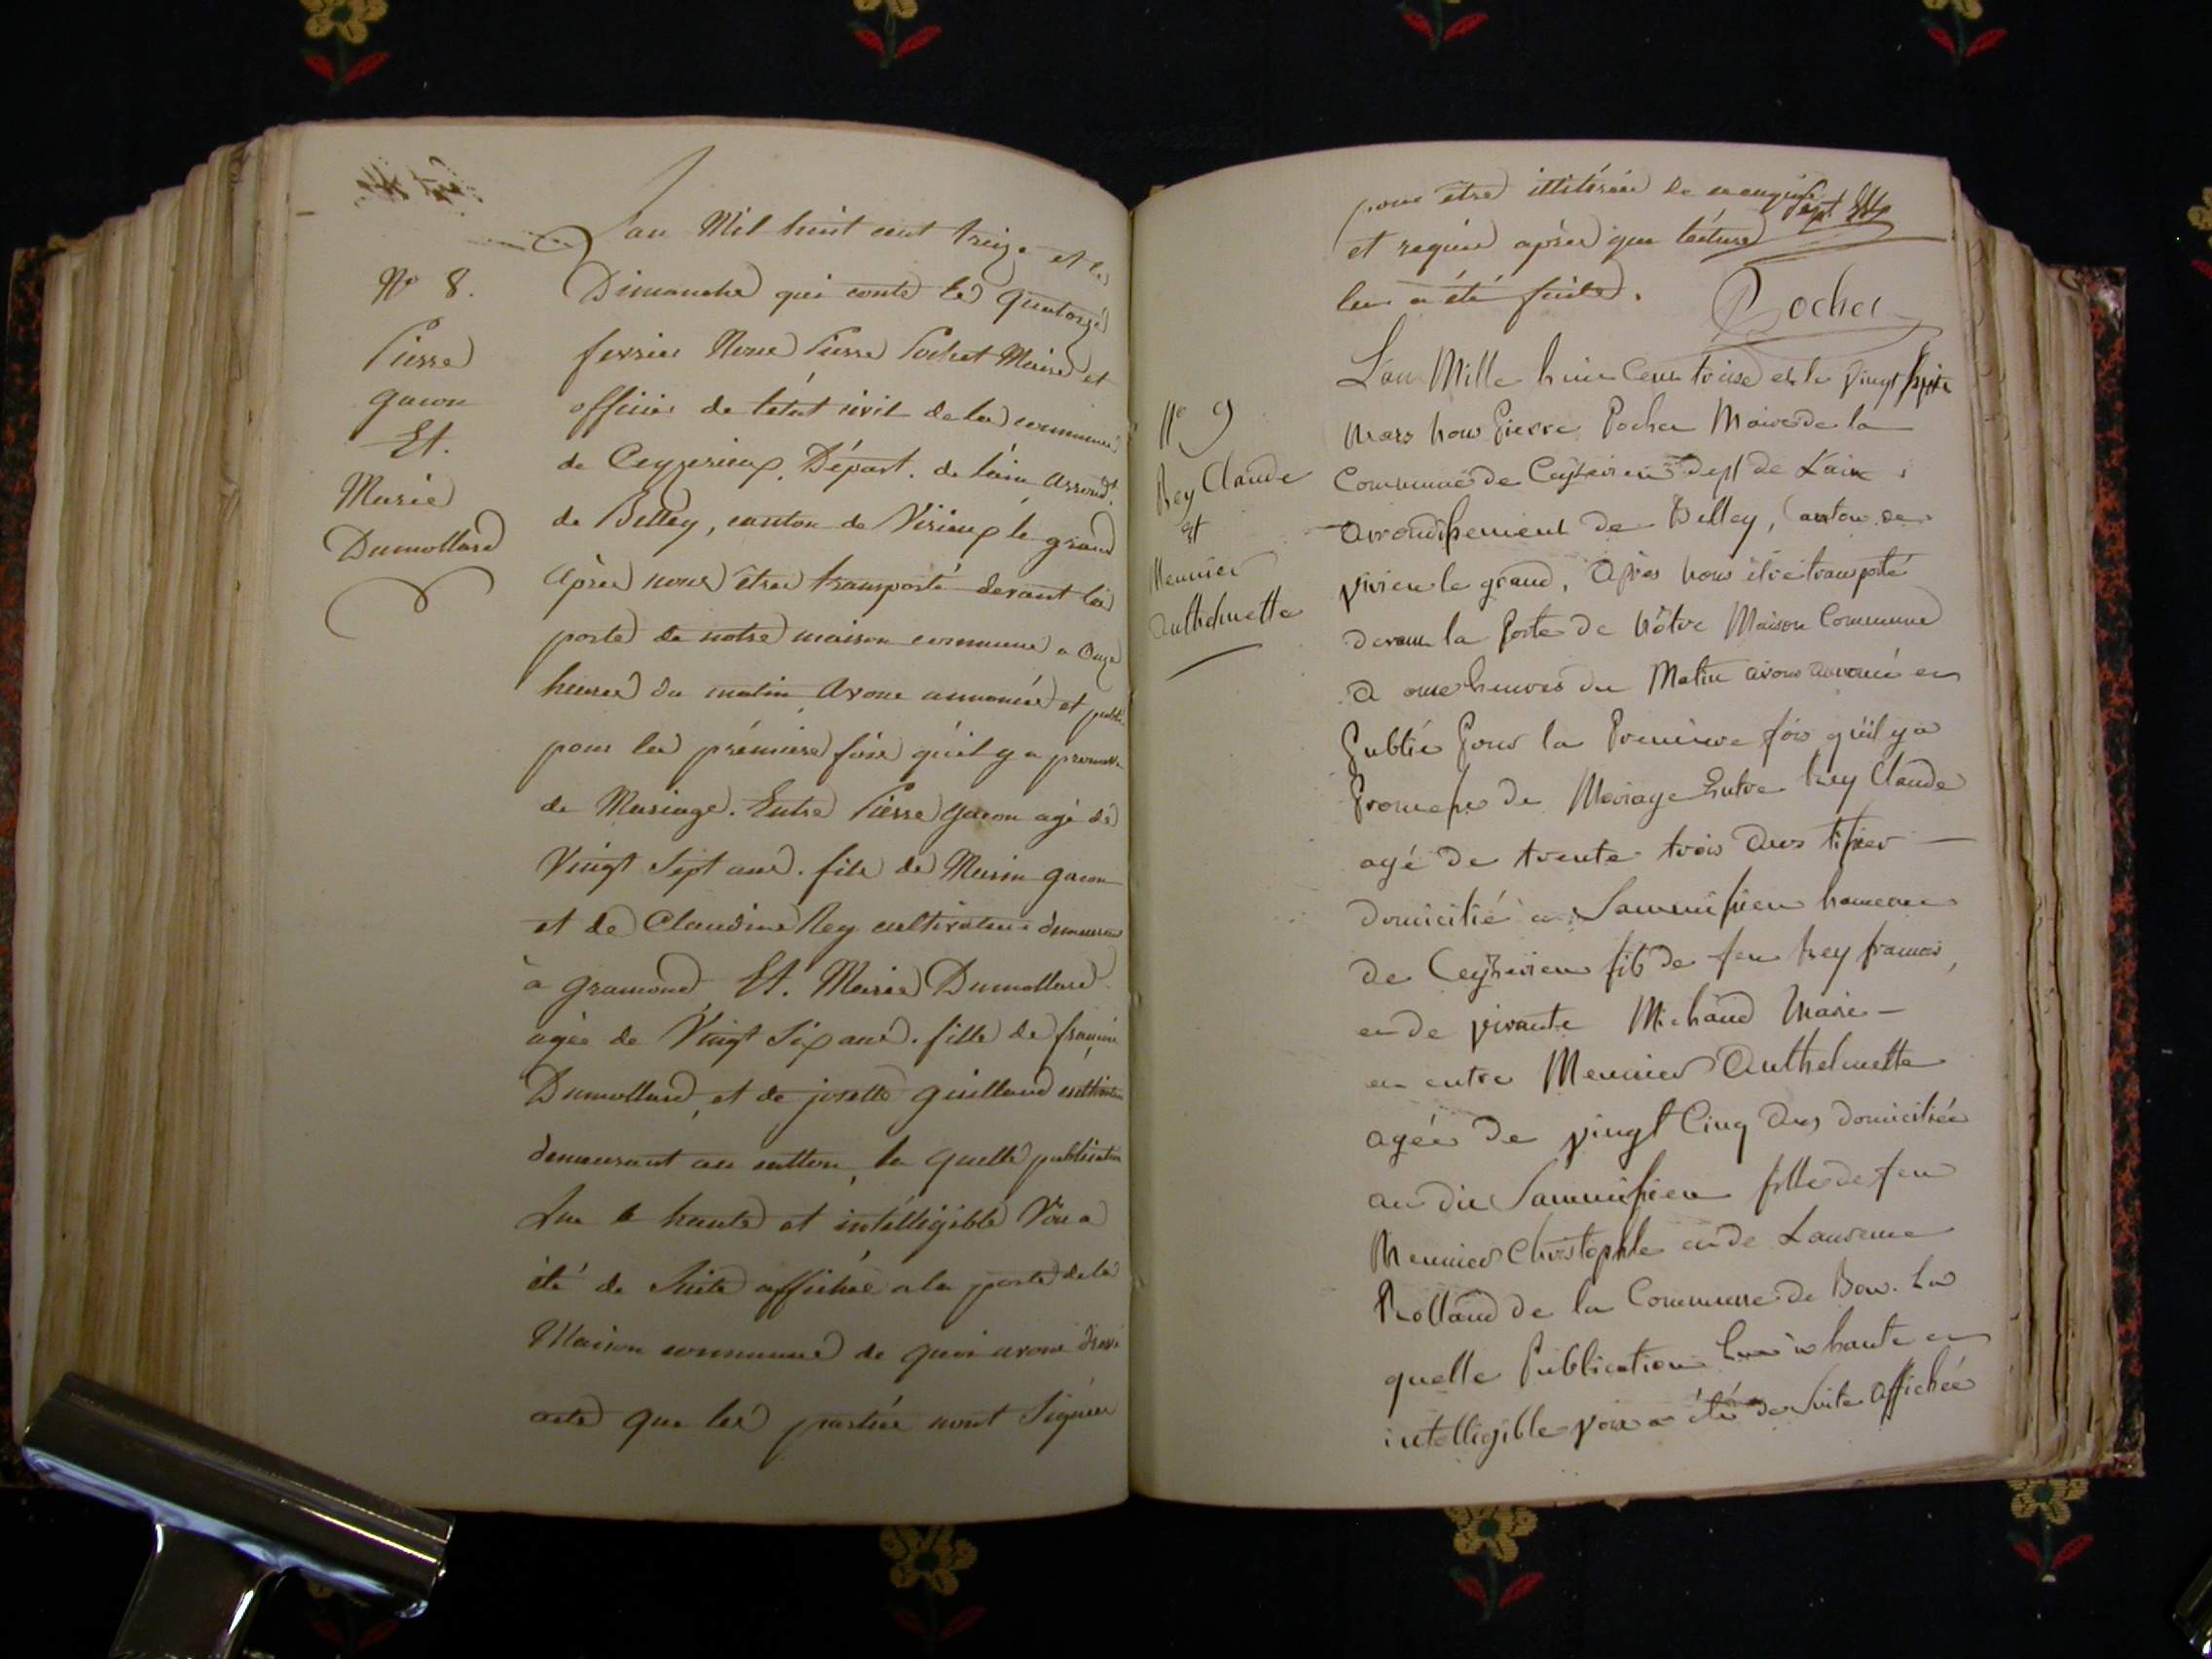 N° 8.
Pierre
gacon
Et.
Marie
Dumollard
Lan Mil huit cent treize et le
Dimanche qui conte le quatorze
fevrier Nous Pierre Pochet Maire et
officier de létat civil de la commune
de Ceyzerieux, Départ. de láin Arrond.t
de Belley, canton de Virieux le grand
Après nous être transporté devant la
porte de notre maison commune a Onze
heures du matin, Avons annoncé et publié
pour la prémiere fois qu'il y a promesse
de Mariage. Entre Pierre gacon agé de
Vingt Sept ans. fils de Marin gacon
et de Claudine Rey cultivateurs demeurant
à gramond Et. Marie Dumollard
agée de Vingt Six ans. fille de françois
Dumollard, et de josette guilland cultivateurs
demeurant au, la quelle publication
Lue a haute et intélligible Voix a
été de Suite affichée a la porte de la
Maison commune de quoi avons dressé
acte que les parties n'ont Signés
pour être illitérées de ce enquis
et requis après que lecture
leur a été faite. Pochet
N° 9
Rey Claude
et
Meunier
Anthelmette
L'an Mille huit Cent treise et le vingt huit
Mars nous Pierre Pochet Maire de la
Commune de Ceyzerieu dept de L'ain
arrondissement de Belley, Canton de
virieu le grand, Après nous être transporté
devant la Porte de nôtre Maison Commune
a onze heures du Matin avons annoncé et
Publié Pour la Premiere fois qu'il y a
Promesse de Mariage Entre Rey Claude
agé de trente trois ans tissier
domicilié a Sammissieu hameau
de Ceyzerieu fils de feu Rey francois,
et de vivante Michaud Marie
et entre Meunier Anthelmette
agée de vingt Cinq ans domiciliée
au dit Sammissieu fille de feu
Meunier Christophle et de Laurence
Rolland de la Commune de Bon. La
quelle Publication Lue a haute et
intelligible voix a été de suite affichée